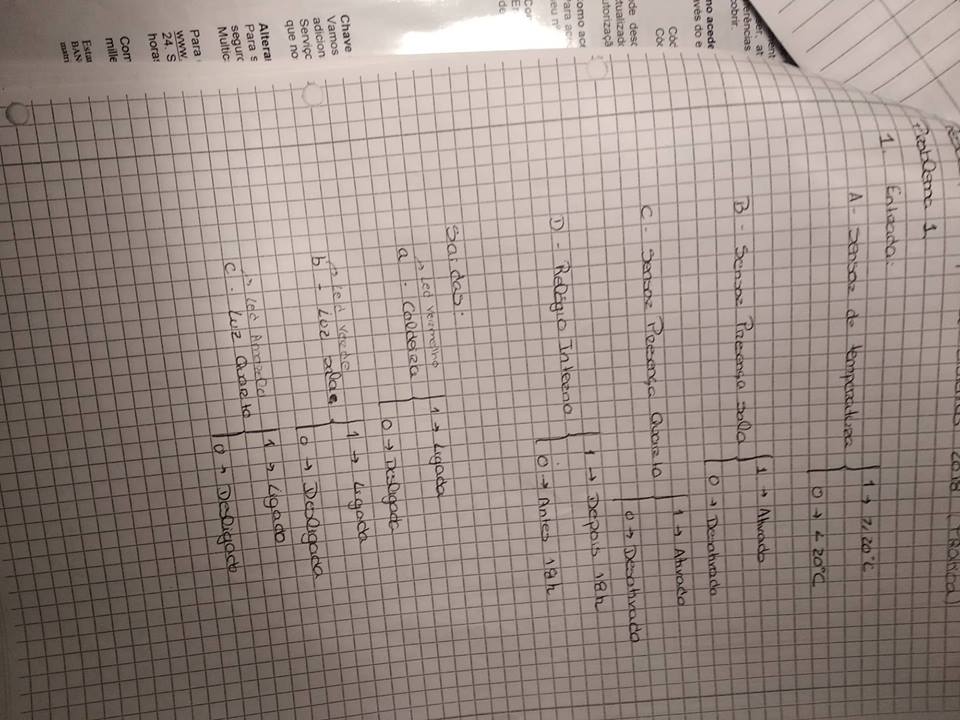 2018 (Prática)
Problema 1
1. Entrada:
A - Sensor de temperatura
1 → ≥ 20°C
0 → < 20°C
B - Sensor Presença sala
1 → Ativado
0 → Desativado
C - Sensor Presença Quarto
1 → Ativado
0 → Desativado
D - Relógio Interno
1 → Depois 18h
0 → Antes 18h
Saídas:
→ Led Vermelho
a - Caldeira
1 → Ligada
0 → Desligada
→ Led verde
b - Luz sala
1 → Ligada
0 → Desligada
→ Led Amarelo
c - Luz Quarto
1 → Ligado
0 → Desligado
ment
ser, at
erências
cobrir.
no acede
vés do e
Cód
Cód
de desc
tualizad
utorizaçã
omo ace
Para ace
eu nº
Cor
Er
de
Chave
Vamos
adicion
Serviço
que no
Altera
Para s
seguro
Multic
Para
www.
24. S
horas
Com
mille
Esta
BAN
matri